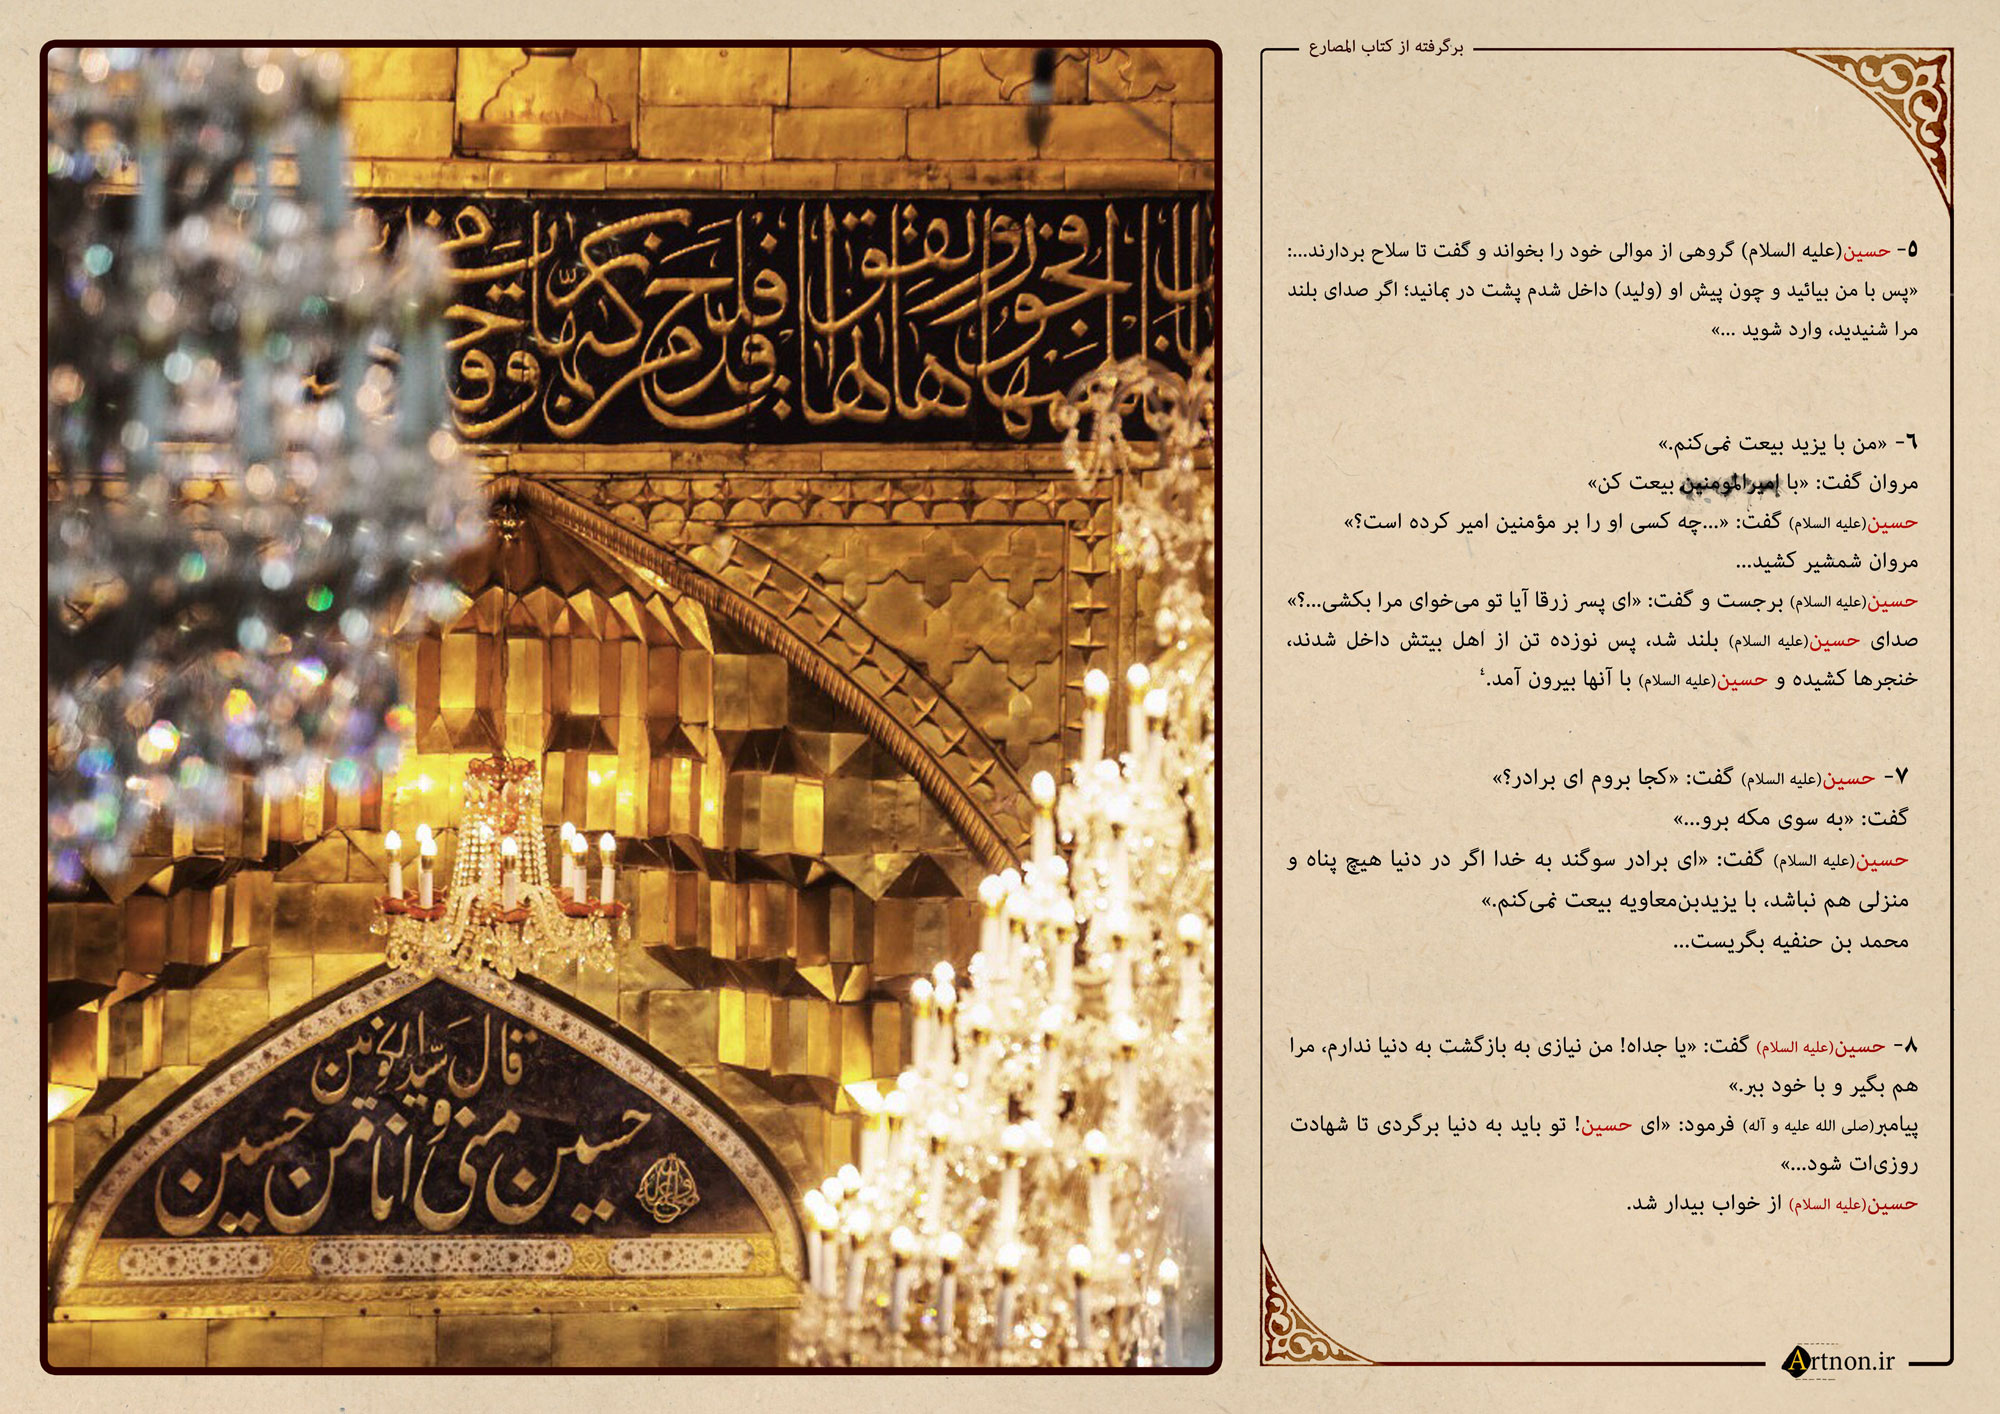 برگرفته از کتاب المصارع
۵- حسین(علیه السلام) گروهی از موالی خود را بخواند و گفت تا سلاح بردارند...:
«پس با من بیائید و چون پیش او (ولید) داخل شدم پشت در بمانید؛ اگر صدای بلند
مرا شنیدید، وارد شوید ...»
٦- «من با یزید بیعت نمی‌کنم.»
مروان گفت: «با امیرالمومنین بیعت کن»
حسین(علیه السلام) گفت: «...چه کسی او را بر مؤمنین امیر کرده است؟»
مروان شمشیر کشید...
حسین(علیه السلام) برجست و گفت: «ای پسر زرقا آیا تو می‌خوای مرا بکشی...؟»
صدای حسین(علیه السلام) بلند شد، پس نوزده تن از اهل بیتش داخل شدند،
خنجرها کشیده و حسین(علیه السلام) با آنها بیرون آمد.٤
۷- حسین(علیه السلام) گفت: «کجا بروم ای برادر؟»
گفت: «به سوی مکه برو...»
حسین(علیه السلام) گفت: «ای برادر سوگند به خدا اگر در دنیا هیچ پناه و
منزلی هم نباشد، با یزیدبن‌معاویه بیعت نمی‌کنم.»
محمد بن حنفیه بگریست...
۸- حسین(علیه السلام) گفت: «یا جداه! من نیازی به بازگشت به دنیا ندارم، مرا
هم بگیر و با خود ببر.»
پیامبر(صلی الله علیه و آله) فرمود: «ای حسین! تو باید به دنیا برگردی تا شهادت
روزی‌ات شود...»
حسین(علیه السلام) از خواب بیدار شد.
Artnon.ir
قال سید الکونین
حسین منی و انا من حسین